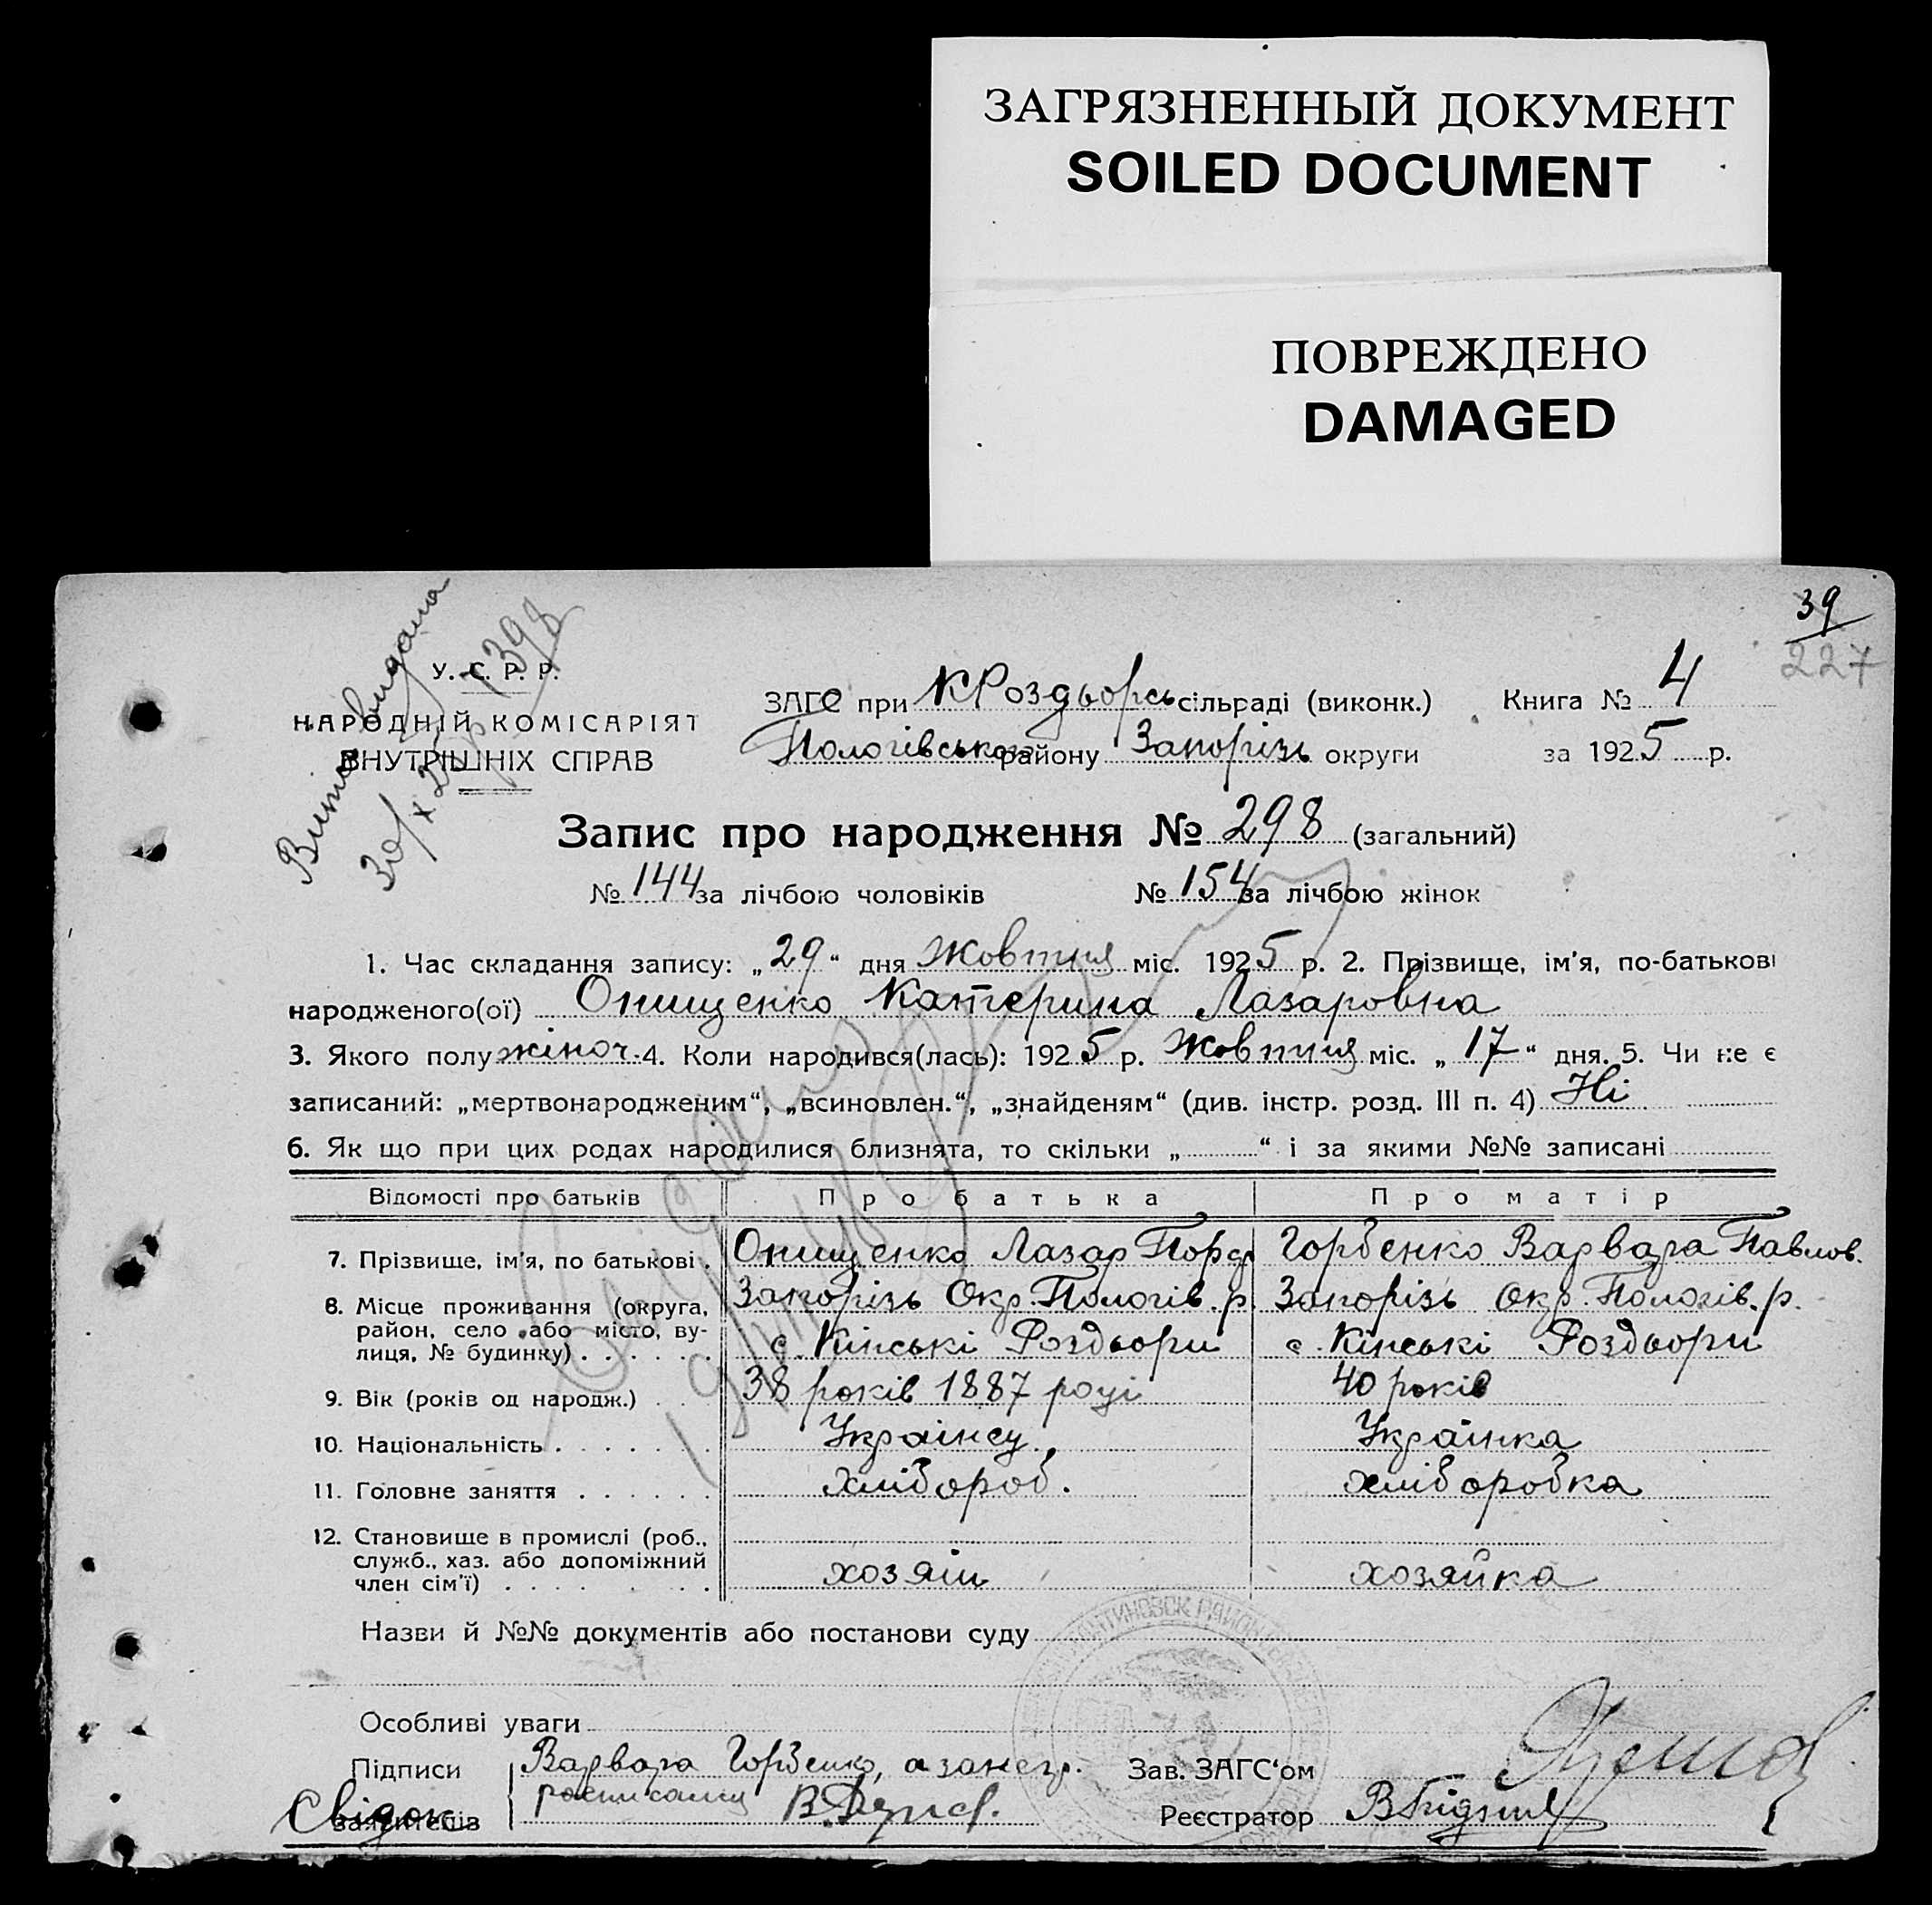 ЗАГРЯЗНЕННЫЙ ДОКУМЕНТ
SOILED DOCUMENT
ПОВРЕЖДЕНО
DAMAGED
39
227
У. С. Р. Р.
НАРОДНІЙ КОМІСАРІЯТ
ВНУТРІШНІХ СПРАВ
видана
ЗАГС при КРоздьорсь сільраді (виконк.) Книга № 4
Пологівського району Запорізь округи за 1925 р.
Запис про народження № 298 (загальний)
№ 144 за лічбою чоловіків № 154 за лічбою жінок
1. Час складання запису: „29“ дня Жовтня міс. 1925 р. 2. Прізвище, ім'я, по-батькові
народженого(ої) Онищенко Катерина Лазаровна
3. Якого полу жіноч. 4. Коли народився(лась): 1925 р. Жовтня міс. „17“ дня. 5. Чи не є
записаний: „мертвонародженим“, „всиновлен.“, „знайденям“ (див. інстр. розд. III п. 4) Ні
6. Як що при цих родах народилися близнята, то скільки „ “ і за якими №№ записані
Відомості про батьків Про батька Про матір
7. Прізвище, ім'я, по батькові . Онищенко Лазар Горбенко Варвара Павлов.
8. Місце проживання (округа, район, село або місто, вулиця, № будинку) . . . . . . Запорізь Окр. Пологів. р. Запорізь Окр. Пологів. р.
с. Кінські Роздьори с. Кінські Роздьори
9. Вік (років од народж.) . . . 38 років 1887 році 40 років
10. Національність . . . . . . . Українец Українка
11. Головне заняття . . . . . . хлібороб. хліборобка
12. Становище в промислі (роб., служб., хаз. або допоміжний член сім'ї) . . . . . . . . хозяїн хозяйка
Назви й №№ документів або постанови суду
Особливі уваги
Підписи Варвара Горбенко, а за Зав. ЗАГС'ом
Свідок заявителів Реєстратор